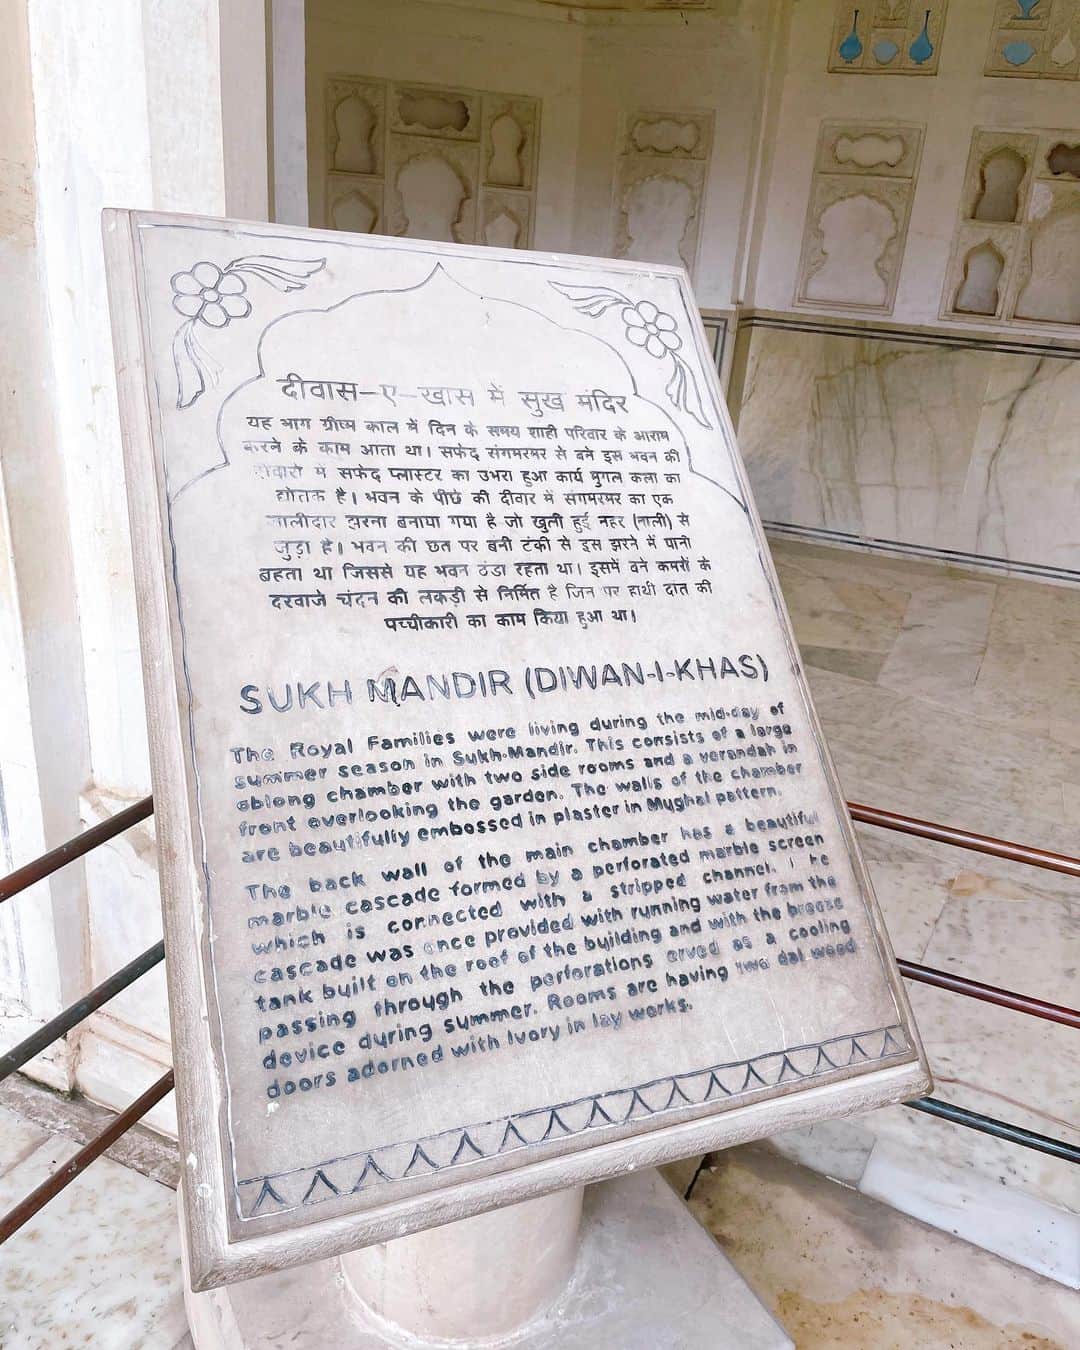 दीवास-ए-खास में सुख मंदिर
यह भाग ग्रीष्म काल में दिन के समय शाही परिवार के आराम
करने के काम आता था। सफेद संगमरमर से बने इस भवन की
दीवारों में सफेद प्लास्टर का उभरा हुआ कार्य मुगल कला का
द्योतक है। भवन के पीछे की दीवार में संगमरमर का एक
जालीदार झरना बनाया गया है जो खुली हुई नहर (नाली) से
जुड़ा है। भवन की छत पर बनी टंकी से इस झरने में पानी
बहता था जिससे यह भवन ठंडा रहता था। इसमें वने कमरों के
दरवाजे चंदन की लकड़ी से निर्मित है जिन पर हाथी दांत की
पच्चीकारी का काम किया हुआ था।
SUKH MANDIR (DIWAN-I-KHAS)
The Royal Families were living during the mid-day of
summer season in Sukh-Mandir. This consists of a large
oblong chamber with two side rooms and a verandah in
front overlooking the garden. The walls of the chamber
are beautifully embossed in plaster in Mughal pattern.
The back wall of the main chamber has a beautiful
marble cascade formed by a perforated marble screen
which is connected with a stripped channel. The
cascade was once provided with running water from the
tank built on the roof of the building and with the breeze
passing through the perforations erved as a cooling
device during summer. Rooms are having two dal wood
doors adorned with Ivory in lay works.